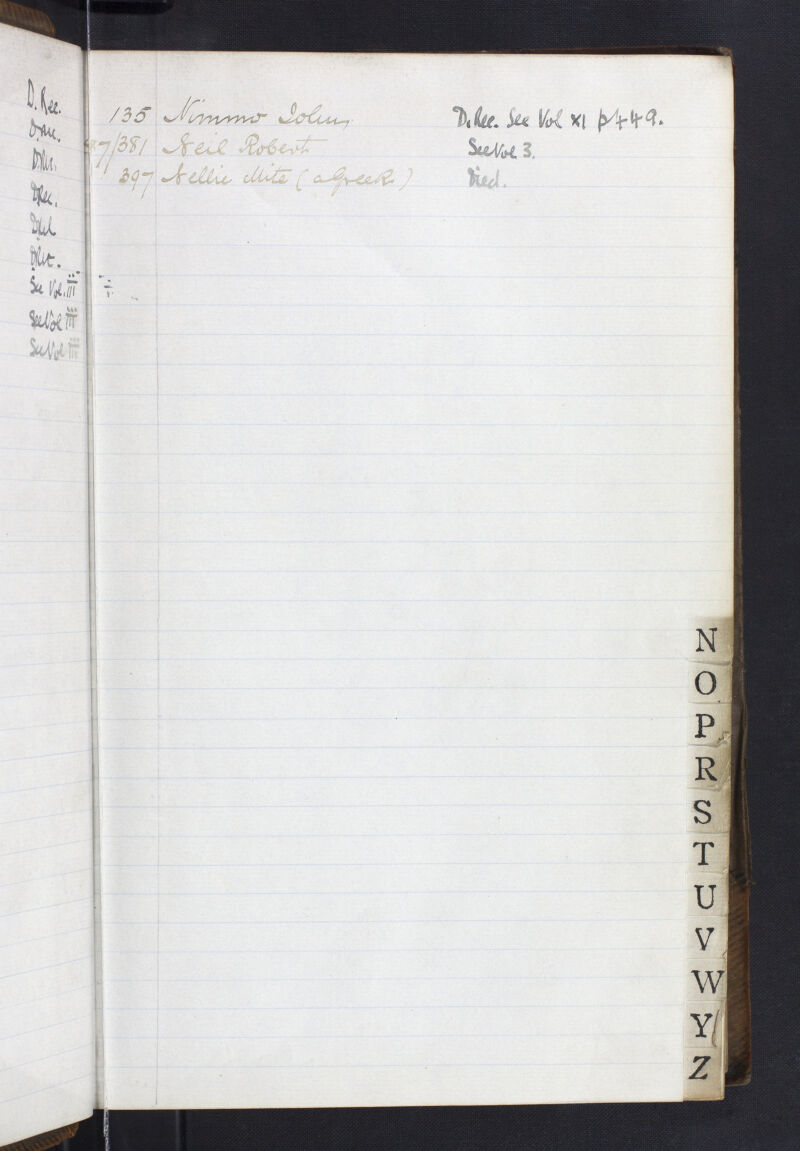 D. Rec.
D. Rec.
D. Rec.
D. Rec.
See Vol. III
See Vol III
See Vol III
135 Nimmo John D. Rec. See Vol XI p 449.
/381 Neil Robert See Vol 3.
397 Nellie Mite (a Greek) Died.
N
O
P
R
S
T
U
V
W
Y
Z